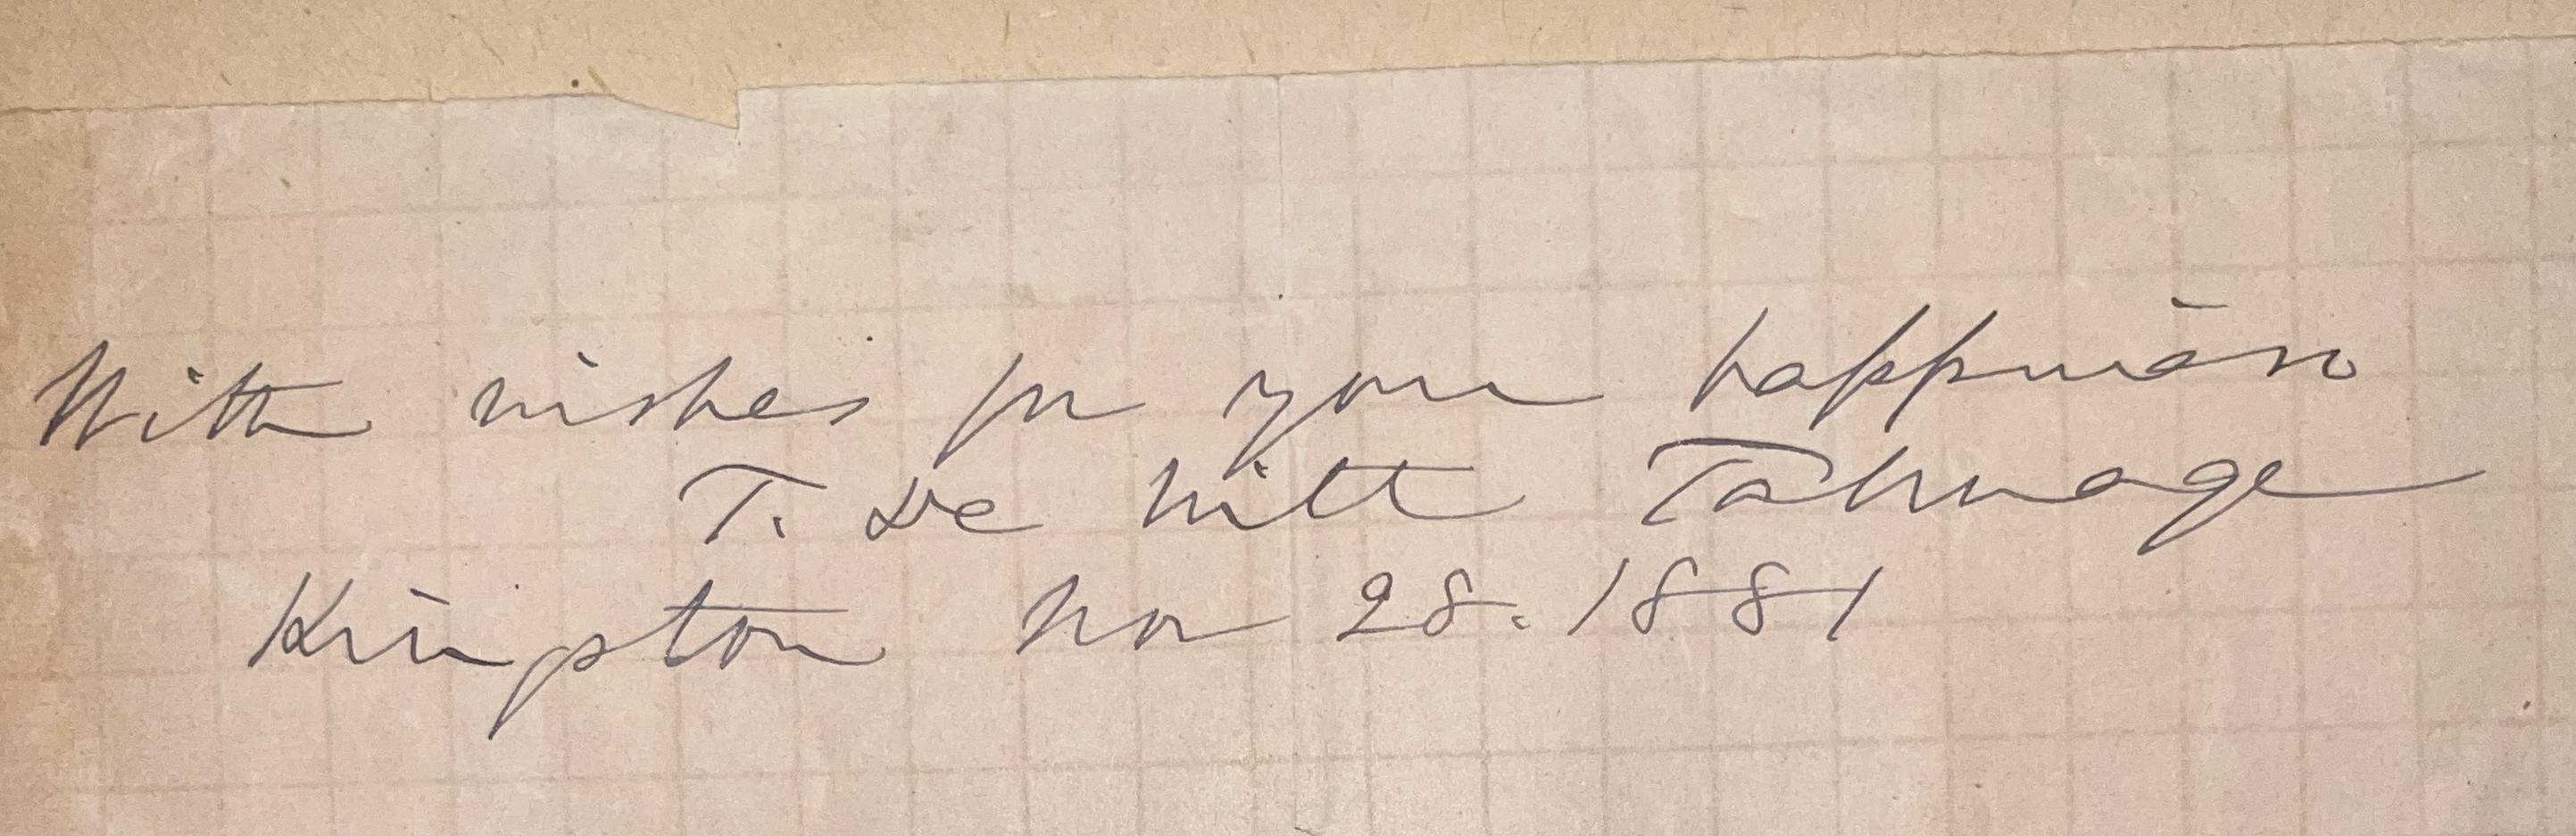 With wishes for your happiness
T. De Witt Talmage
Kingston Nov 28. 1881